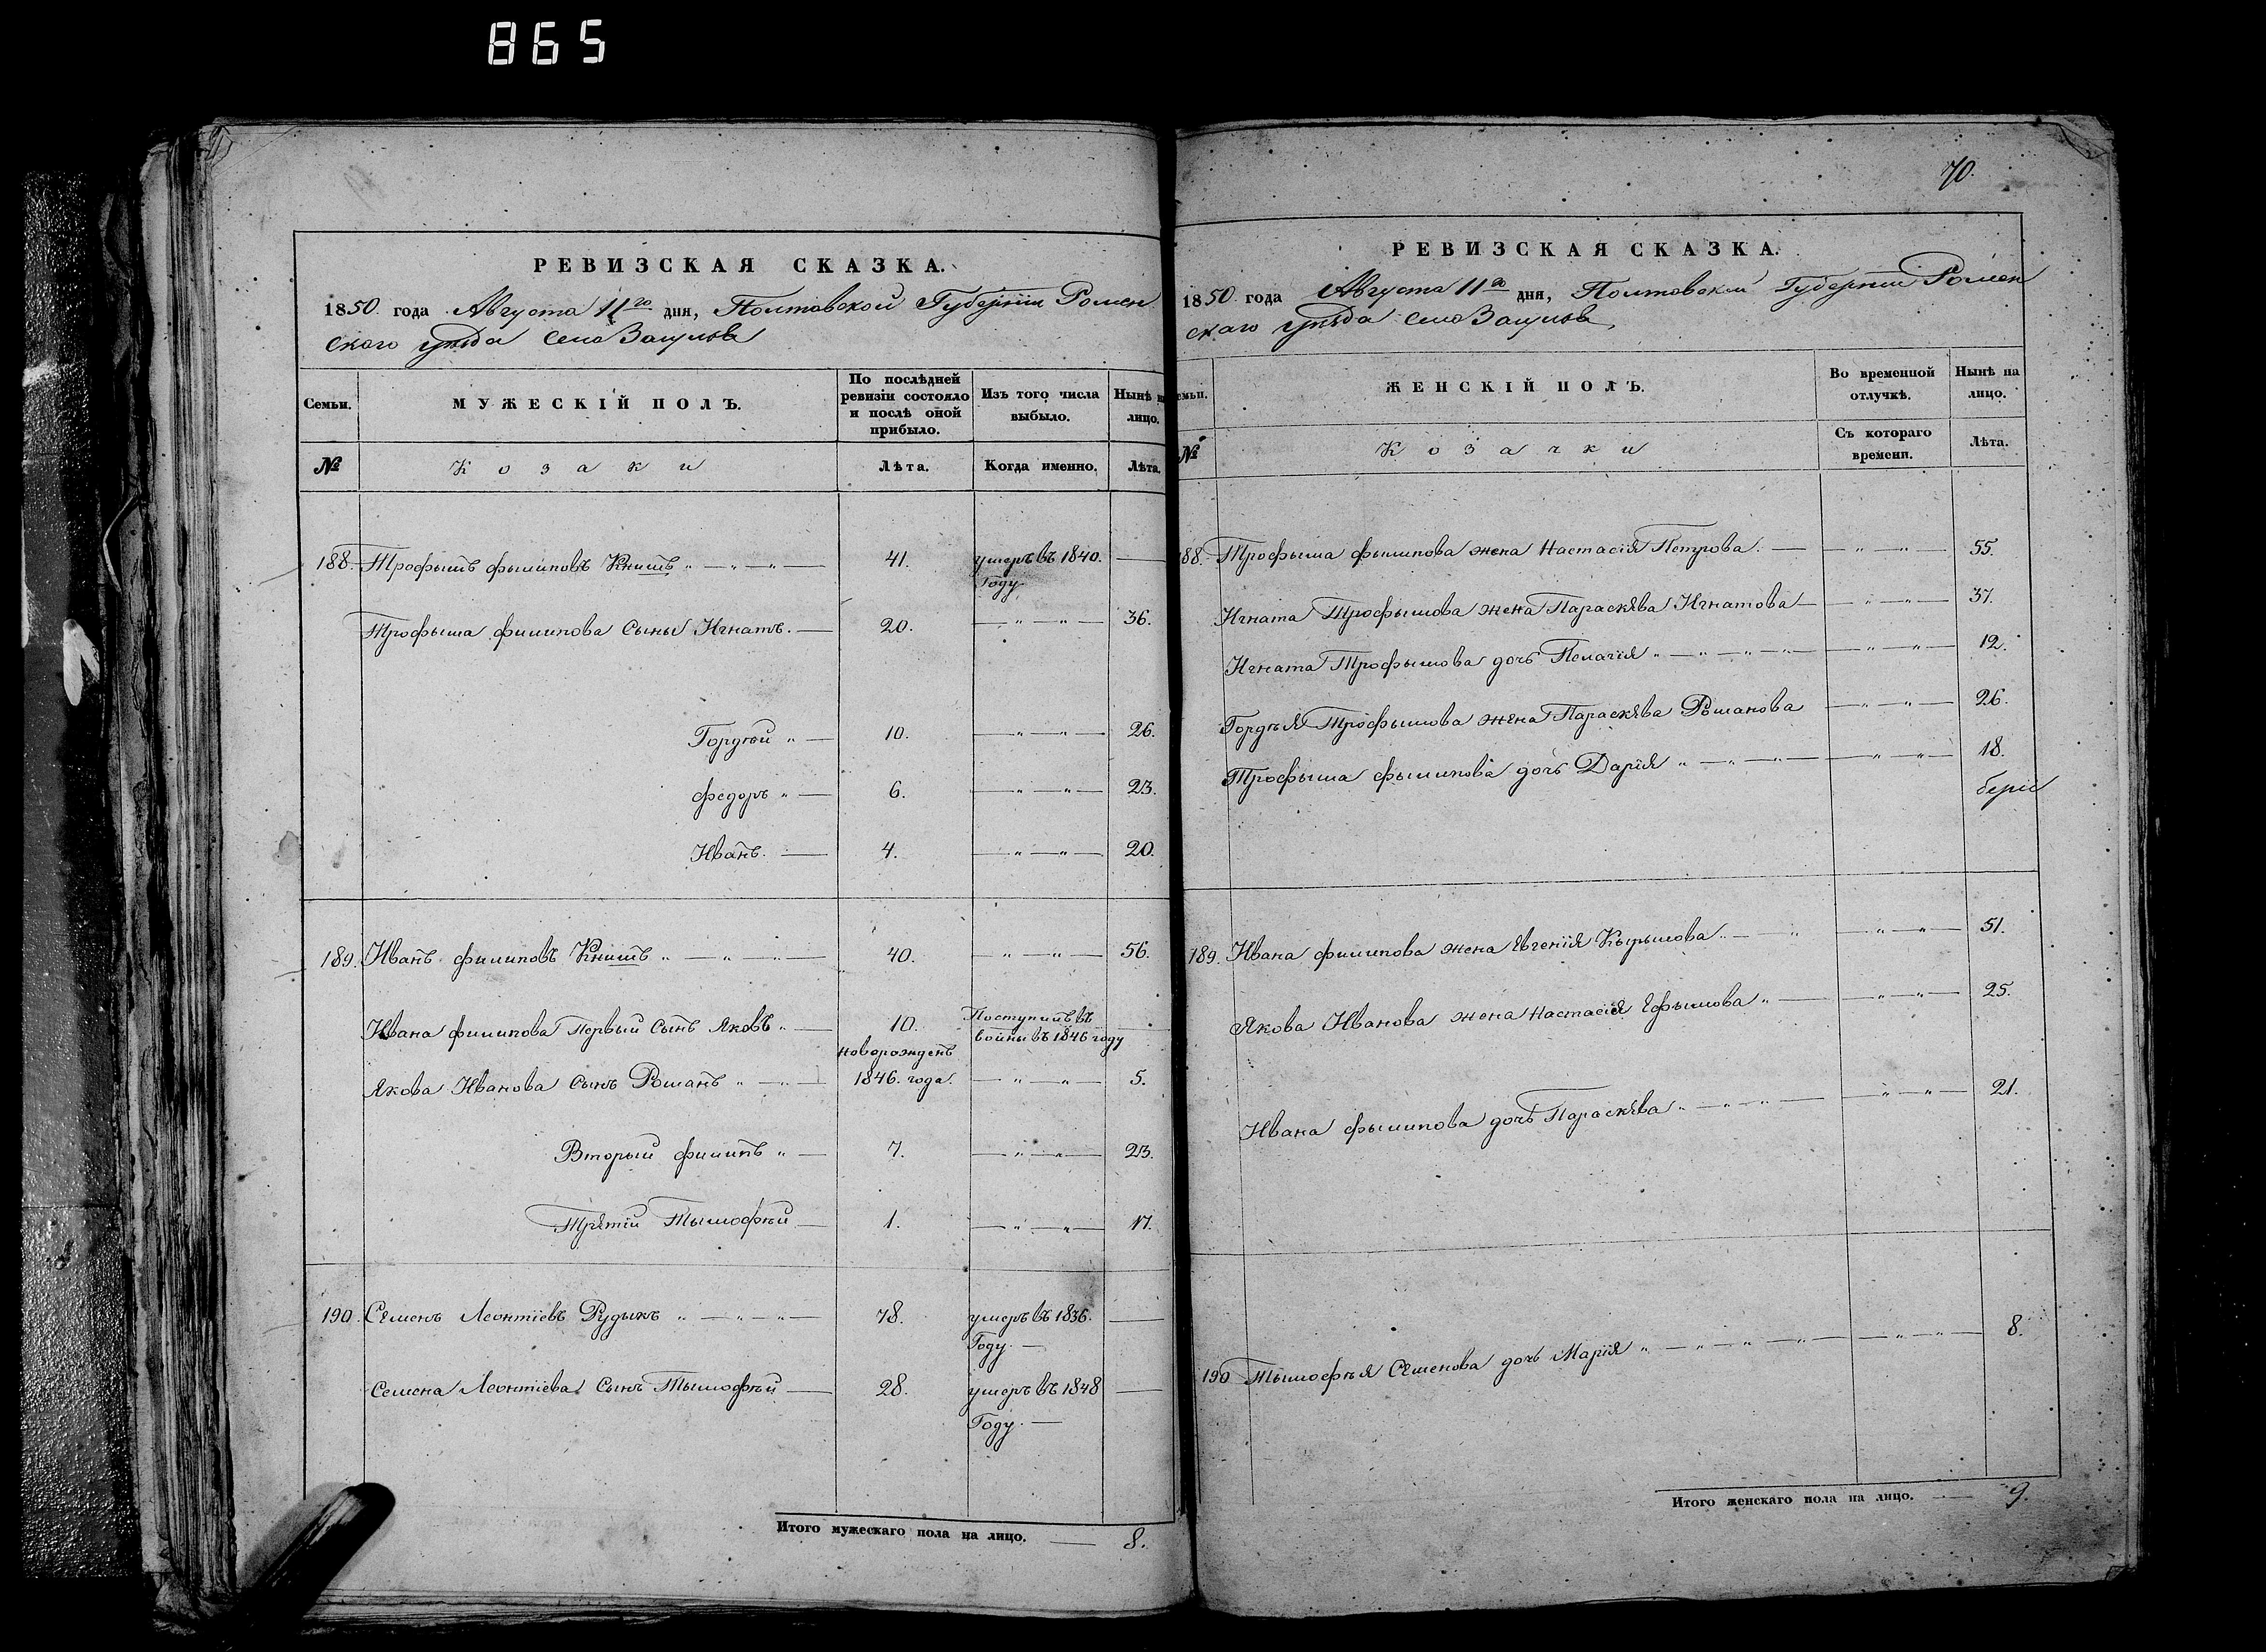 865
РЕВИЗСКАЯ СКАЗКА.
1850. года Августа 11го дня, Полтавской Губерніи Ромен
ского уезда село Засулье
Семьи. МУЖЕСКІЙ ПОЛЪ. По послѣдней ревизіи состояло и послѣ оной прибыло. Изъ того числа выбыло. Нынѣ на лицо.
№ Козаки Лѣта. Когда именно. Лѣта.
188. Трофымъ филиповъ Книшъ 41. умеръ въ 1840. Году —
Трофыма филипова Сыны Игнатъ. 20. 36.
Гордѣй 10. 26.
федоръ 6. 23.
Иванъ. 4. 20.
189. Иванъ филиповъ Книшъ 40. 56.
Ивана филипова Первый Сынъ Яковъ 10. Поступилъ въ войны въ 1846 году
Якова Иванова Сынъ Романъ новорожденъ 1846. года. 5.
Вторый филипъ 7. 23.
Третій Тымофѣй 1. 17.
190. Семенъ Леонтіевъ Рудыкъ 78. умеръ въ 1836. Году. —
Семена Леонтіева Сынъ Тымофѣй 28. умеръ въ 1848 Году. —
Итого мужескаго пола на лицо. — 8.
70.
РЕВИЗСКАЯ СКАЗКА.
1850 года Августа 11го дня, Полтавской Губерніи Ромен
скаго уезда село Засулье
емьи. ЖЕНСКІЙ ПОЛЪ. Во временной отлучкѣ. Нынѣ на лицо.
№ Козачки Съ котораго времени. Лѣта.
188. Трофыма фылипова жена Настасія Петрова. 55.
Игната Трофымова жена Параскева Игнатова 37.
Игната Трофымова дочь Пелагія 12.
Гордѣя Трофымова жена Параскева Романова 26.
Трофыма фылипова дочь Дарія 18.
189. Ивана филипова жена Евгенія Кырылова 51.
Якова Иванова жена Настасія Ефымова 25.
Ивана фылипова дочь Параскева 21.
190 Тымофѣя Семенова дочь Марія 8.
Итого женскаго пола на лицо. — 9.